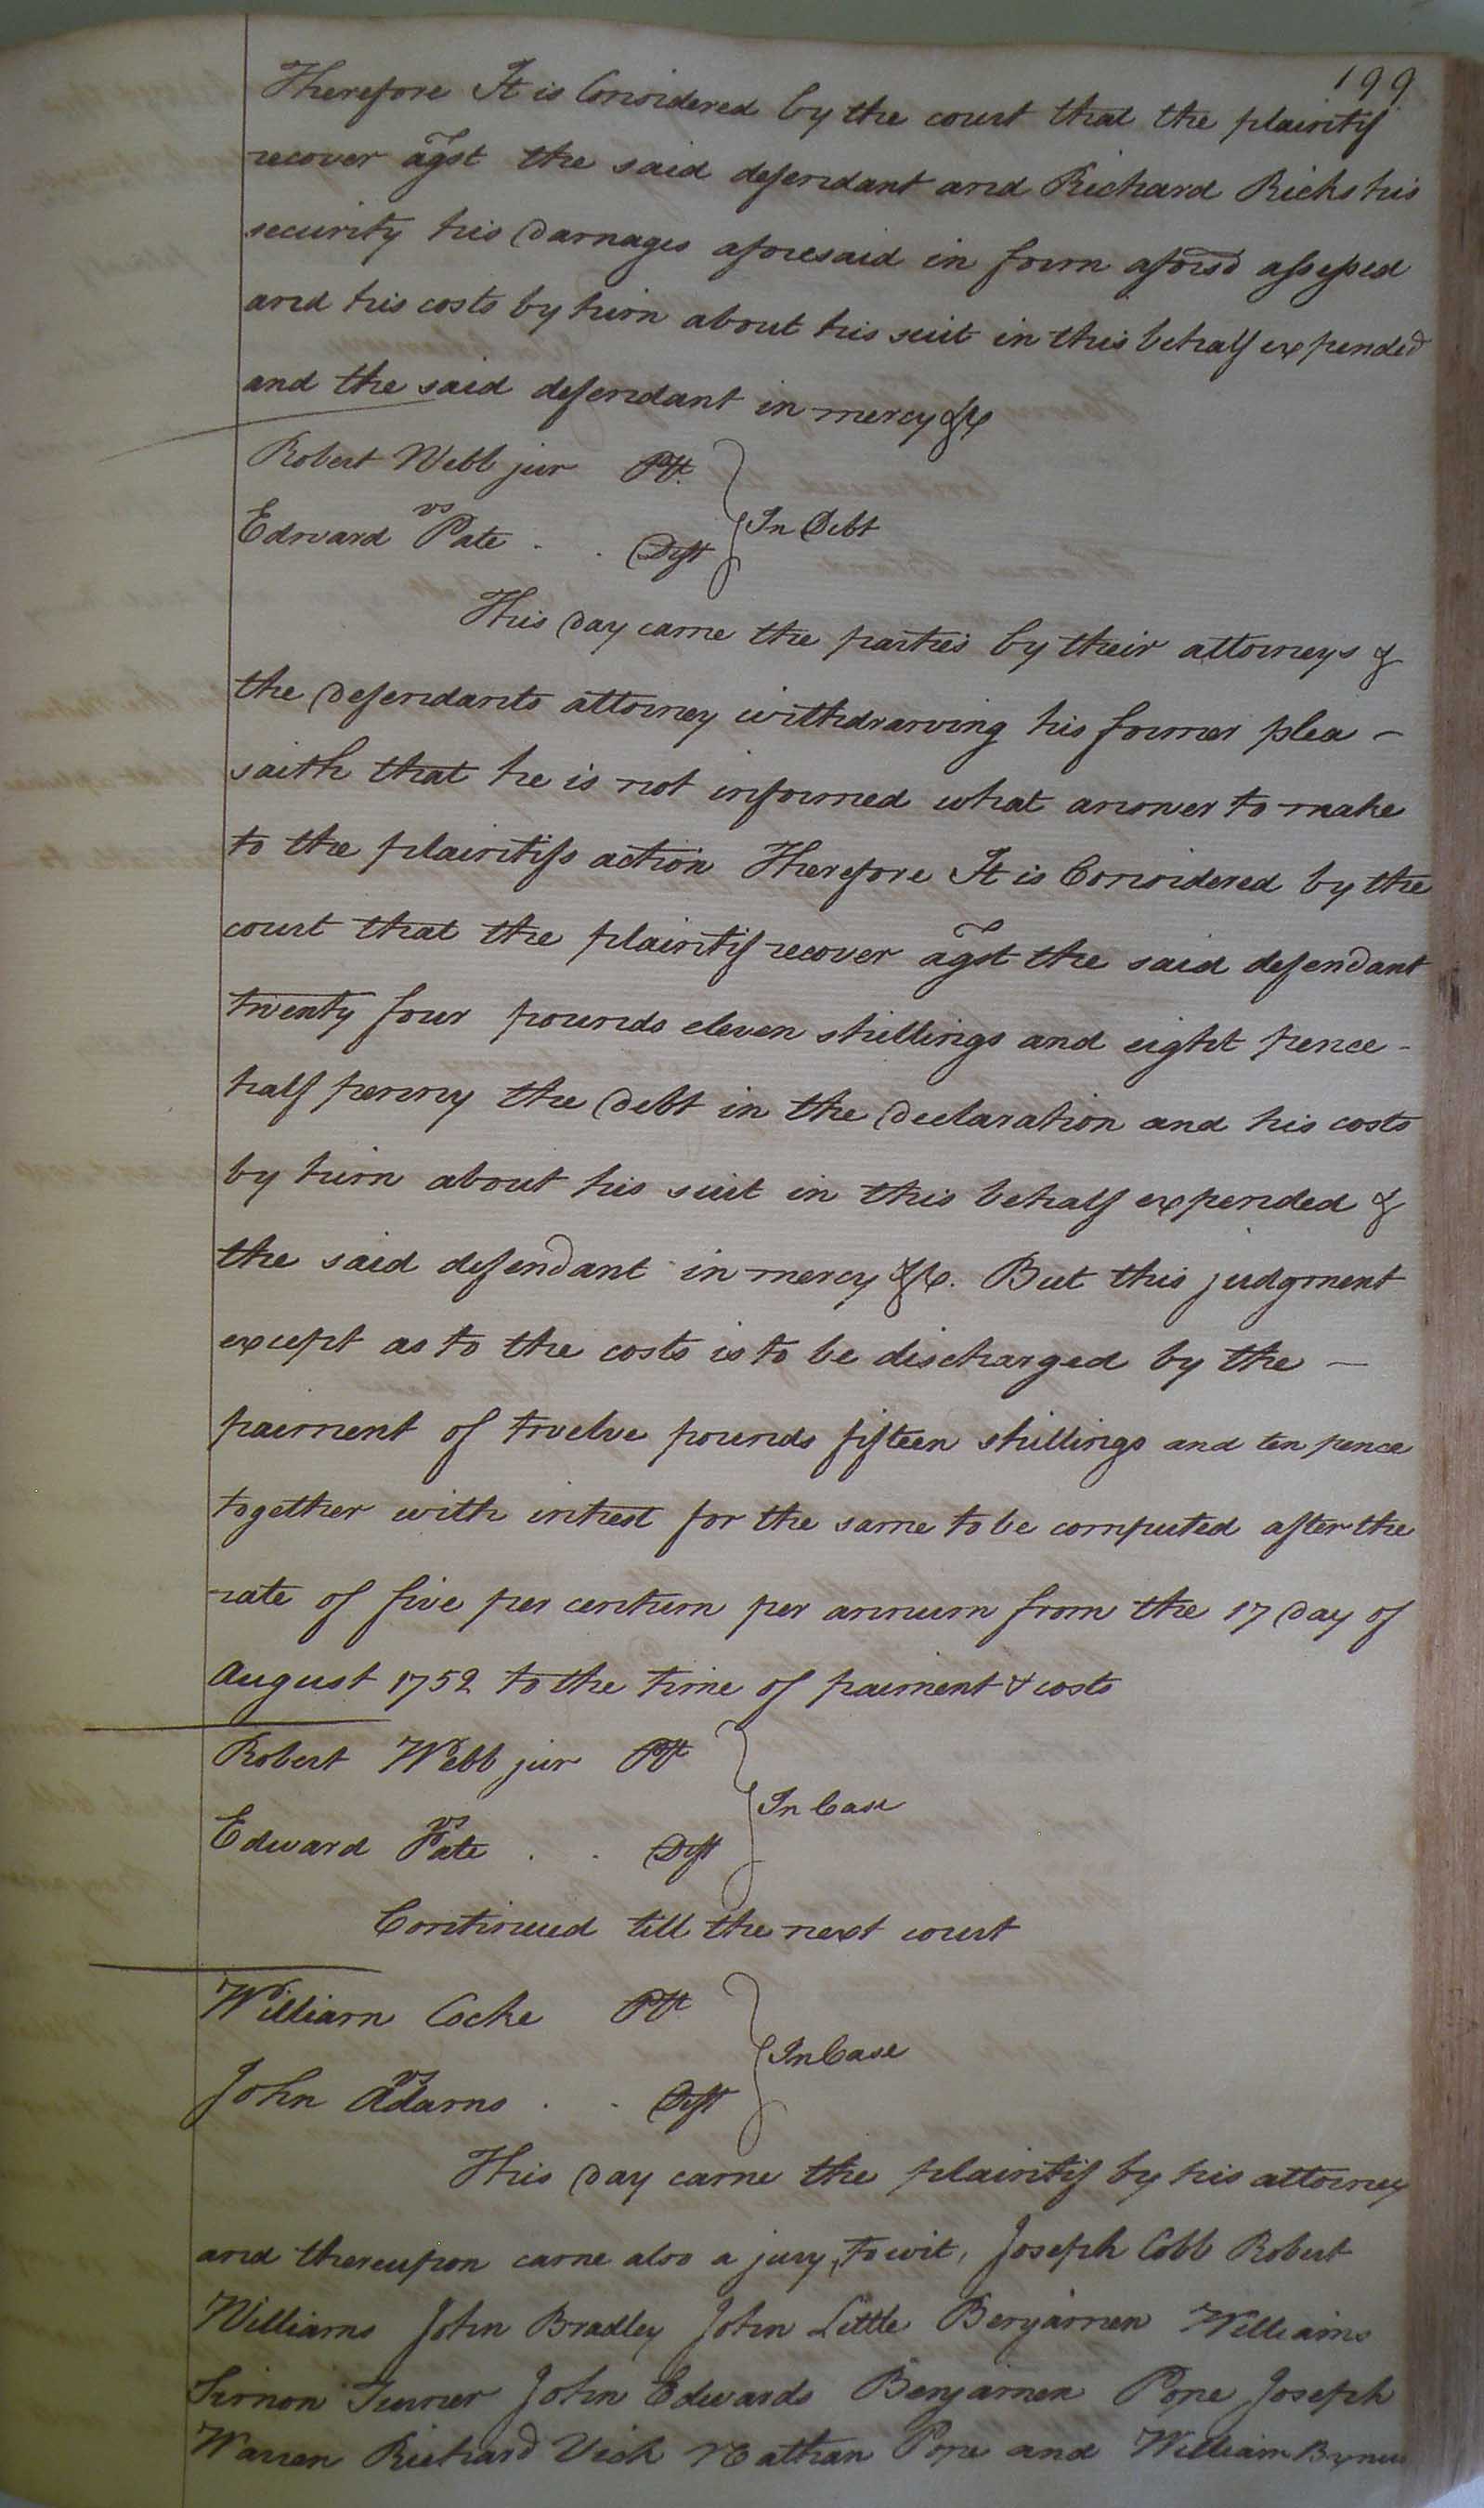 199
Therefore It is Considered by the court that the plaintif
recover agst the said defendant and Richard Ricks his
security his Damages aforesaid in form aforsd assessed
and his costs by him about his suit in this behalf expended
and the said defendant in mercy &c
Robert Webb jur Plt.
vs
In Debt
Edward Pate . . Deft
This Day came the parties by their attorneys &
the Defendants attorney withdrawing his former plea -
saith that he is not informed what answer to make
to the plaintifs action Therefore It is Considered by the
court that the plaintif recover agst the said defendant
twenty four pounds eleven shillings and eight pence -
half penny the Debt in the Declaration and his costs
by him about his suit in this behalf expended &
the said defendant in mercy &c. But this judgment
except as to the costs is to be discharged by the -
paiment of twelve pounds fifteen shillings and ten pence
together with intrest for the same to be computed after the
rate of five per centum per annum from the 17 Day of
August 1752 to the time of paiment & costs
Robert Webb jur Plt
vs
In Case
Edward Pate . . Deft
Continued till the next court
William Cocke Plt
vs
In Case
John Adams . . Deft
This Day came the plaintif by his attorney
and thereupon came also a jury, to wit, Joseph Cobb Robert
Williams John Bradley John Little Benjamen Williams
Simon Turner John Edwards Benjamen Pope Joseph
Warren Richard Vick Nathan Pope and William Bynum